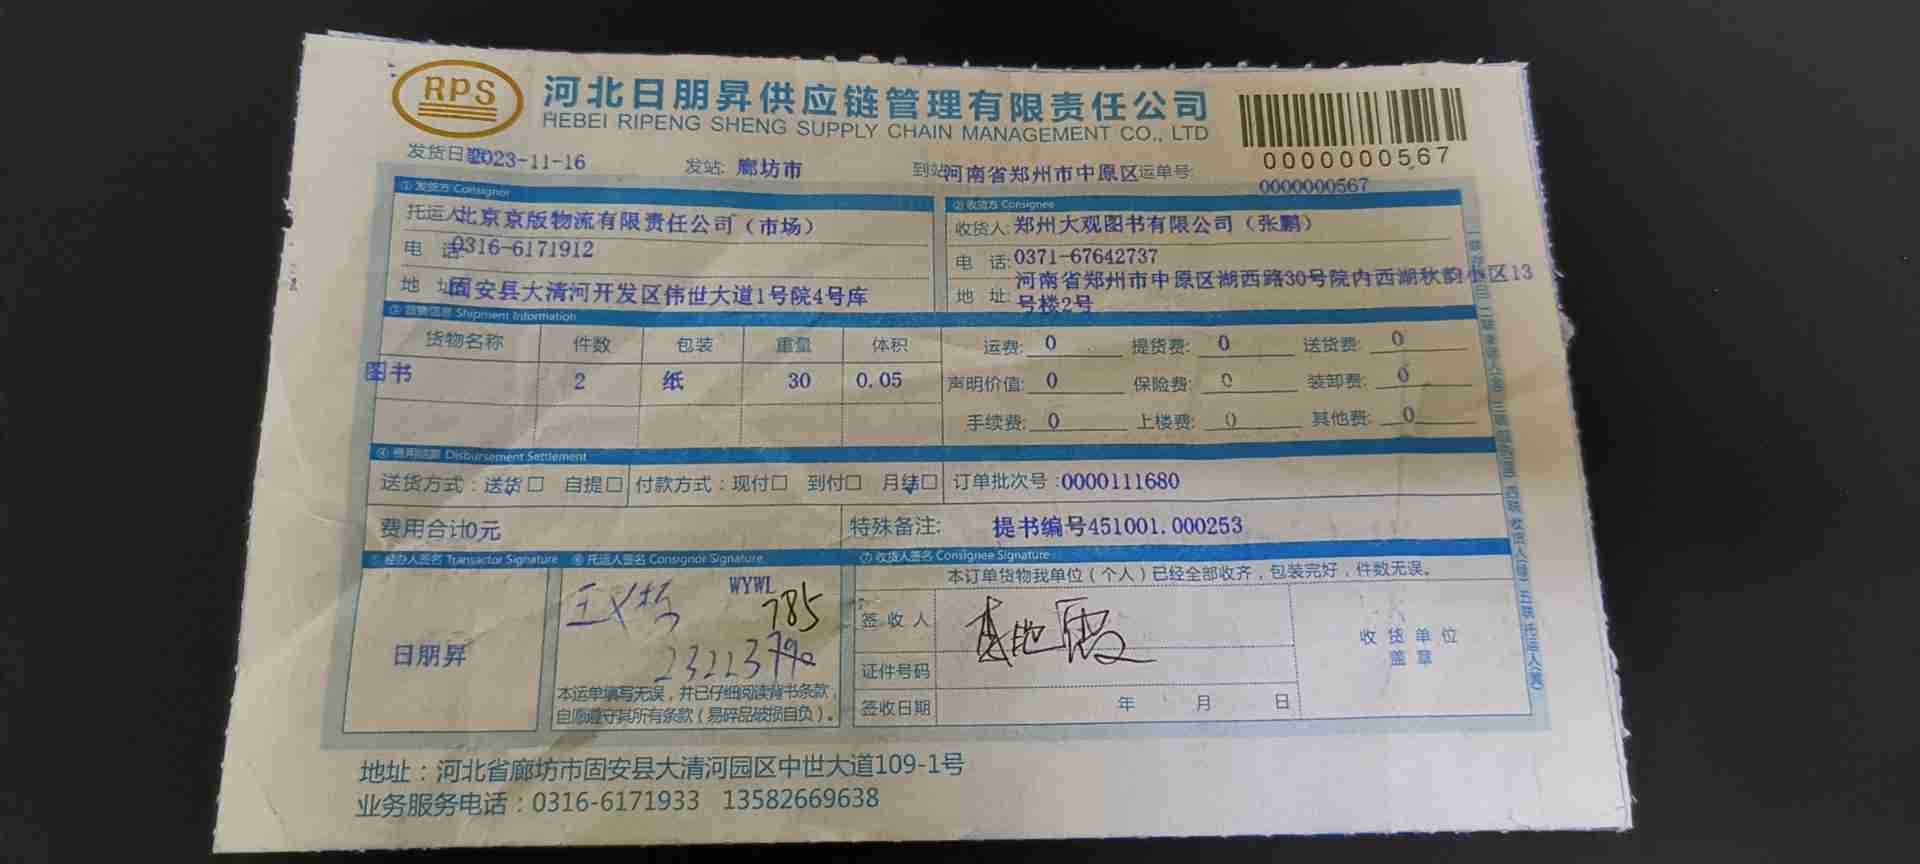 RPS
河北日朋昇供应链管理有限责任公司
HEBEI RIPENG SHENG SUPPLY CHAIN MANAGEMENT CO., LTD
0000000567
发货日期 2023-11-16 发站: 廊坊市 到站 河南省郑州市中原区 运单号: 0000000567
① 发货方 Consignor
② 收货方 Consignee
托运人 北京京版物流有限责任公司（市场）
收货人: 郑州大观图书有限公司（张鹏）
电 话 0316-6171912
电 话: 0371-67642737
地 址 固安县大清河开发区伟世大道1号院4号库
地 址: 河南省郑州市中原区湖西路30号院内西湖秋韵小区13
号楼2号
③ Shipment Information
货物名称 件数 包装 重量 体积
图书 2 纸 30 0.05
运费: 0 提货费: 0 送货费: 0
声明价值: 0 保险费: 0 装卸费: 0
手续费: 0 上楼费: 0 其他费: 0
④ 费用结算 Disbursement Settlement
送货方式：送货□ 自提□ 付款方式：现付□ 到付□ 月结□ 订单批次号 :0000111680
费用合计0元 特殊备注: 提书编号451001.000253
⑤ 经办人签名 Transactor Signature ⑥ 托运人签名 Consignor Signature ⑦ 收货人签名 Consignee Signature
本订单货物我单位（个人）已经全部收齐，包装完好，件数无误。
日朋昇
WYWL
785
本运单填写无误，并已仔细阅读背书条款，
自愿遵守其所有条款（易碎品破损自负）。
签 收 人
证件号码
签收日期 年 月 日
收 货 单 位
盖 章
地址：河北省廊坊市固安县大清河园区中世大道109-1号
业务服务电话：0316-6171933 13582669638